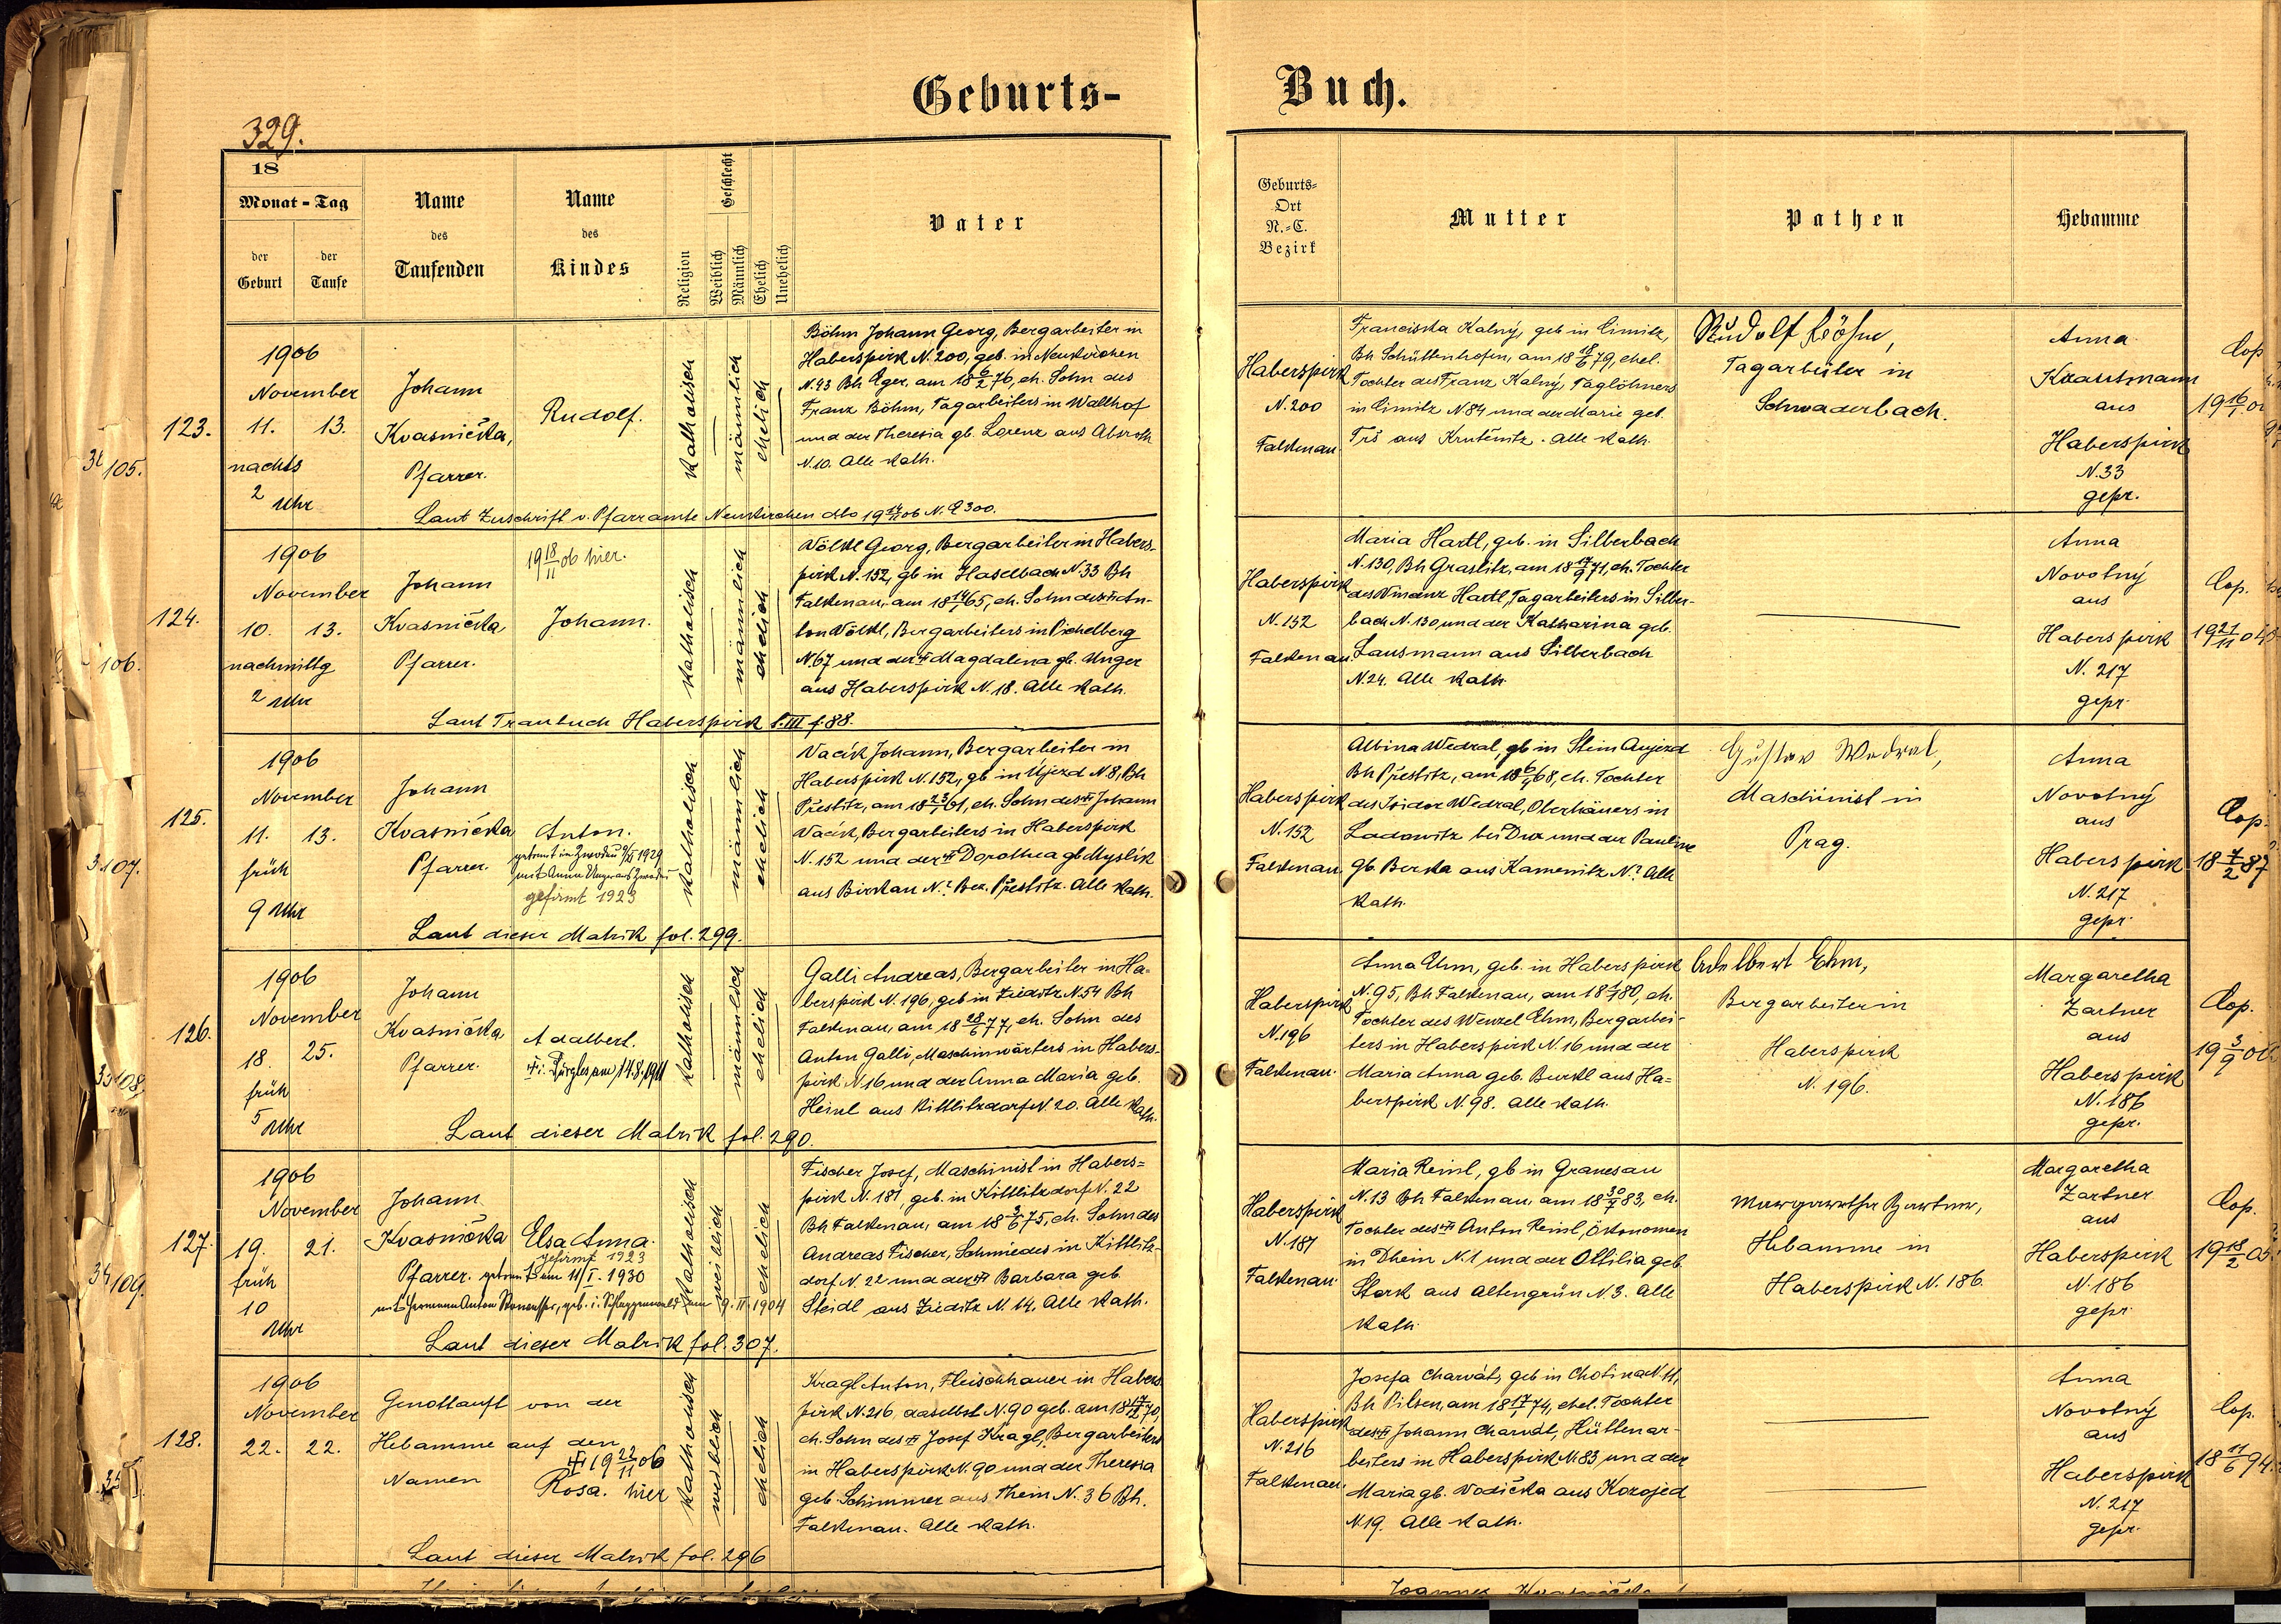 Geburts-
Buch.
329.
18
Monat - Tag
der Geburt
der Taufe
Name des Taufenden
Name des Kindes
Religion
Geschlecht
Weiblich
Männlich
Ehelich
Unehelich
Vater
Geburts-
Ort
N.-C.
Bezirk
Mutter
Pathen
Hebamme
123.
105.
1906
November
11. 13.
nachts
2 Uhr
Johann
Kvasnička,
Pfarrer.
Rudolf.
katholisch
männlich
ehelich
Böhm Johann Georg, Bergarbeiter in
Haberspirk N. 200, geb. in Neukirchen
N. 43 Bh Eger, am 18 6/2 76, eh. Sohn des
Franz Böhm, Tagarbeiters in Wallhof
und der Theresia gb. Lorenz aus Absroth
N. 10. Alle kath.
Laut Zuschrift v. Pfarramte Neukirchen dto 19 14/11 06 N. E 300.
Haberspirk
N. 200
Falkenau
Franciska Kalný, geb in Cimitz,
Bh Schüttenhofen, am 18 18/6 79, ehel.
Tochter des Franz Kalný, Taglöhners
in Cimitz N 84 und der Marie geb.
Trš aus Krutěnitz. Alle kath.
Rudolf Böhm,
Tagarbeiter in
Schwaderbach.
Anna
Krautmann
aus
Haberspirk
N. 33
gepr.
Cop
124.
106.
1906
November
10. 13.
nachmittg
2 Uhr
Johann
Kvasnička
Pfarrer.
19 18/11 06 hier.
Johann.
katholisch
männlich
ehelich
Wölkl Georg, Bergarbeiter in Habers-
pirk N. 152, gb in Haselbach N. 33 Bh
Falkenau, am 18 14/1 65, eh. Sohn des An-
ton Wölkl, Bergarbeiters in Pichelberg
N. 67 und der Magdalena gb. Unger
aus Haberspirk N. 18. Alle kath.
Laut Traubuch Haberspirk t. III f. 88.
Haberspirk
N. 152
Falkenau.
Maria Hartl, geb. in Silberbach
N. 130, Bh Graslitz, am 18 17/9 71, eh. Tochter
des Vinzenz Hartl, Tagarbeiters in Silber-
bach N. 130 und der Katharina geb.
Lausmann aus Silberbach
N. 24. Alle kath.
Anna
Novotný
aus
Haberspirk
N. 217
gepr.
Cop.
125.
107.
1906
November
11. 13.
früh
9 Uhr
Johann
Kvasnička
Pfarrer.
Anton.
getraut in Zwodau
mit Anna
gefirmt 1923
katholisch
männlich
ehelich
Vacík Johann, Bergarbeiter in
Haberspirk N. 152, gb in Újezd N. 8, Bh
Přestitz, am 18 23/1 61, eh. Sohn des Johann
Vacík, Bergarbeiters in Haberspirk
N. 152 und der Dorothea gb Myslík
aus Birkau N.? Bez. Přestitz. Alle kath.
Laut dieser Matrik fol. 299.
Haberspirk
N. 152
Falkenau
Albina Wedral, gb in Stein Aujezd
Bh Přestitz, am 18 6/1 68, eh. Tochter
des Isidor Wedral, Oberhäuers in
Ladowitz bei Dux und der Pauline
gb. Berka aus Kamenitz N.? Alle
kath.
Gustav Wedral,
Maschinist in
Prag.
Anna
Novotný
aus
Haberspirk
N. 217
gepr.
Cop.
18 7/2 87
126.
108.
1906
November
18. 25.
früh
5 Uhr
Johann
Kvasnička
Pfarrer.
Adalbert.
am 14.8.1911
katholisch
männlich
ehelich
Galli Andreas, Bergarbeiter in Ha-
berspirk N. 196, geb in Zieditz N. 54 Bh
Falkenau, am 18 28/6 77, eh. Sohn des
Anton Galli, Maschinwärters in Habers-
pirk N 16 und der Anna Maria geb.
Heinl aus Kittlitzdorf N. 20. Alle kath.
Laut dieser Matrik fol. 290.
Haberspirk
N. 196
Falkenau.
Anna Ehm, geb. in Haberspirk
N. 95, Bh Falkenau, am 18 1/1 80, eh.
Tochter des Wenzel Ehm, Bergarbei-
ters in Haberspirk N. 16 und der
Maria Anna geb. Burkl aus Ha-
berspirk N. 98. Alle kath.
Adelbert Ehm,
Bergarbeiter in
Haberspirk
N. 196.
Margaretha
Zartner
aus
Haberspirk
N. 186
gepr.
Cop.
127.
109.
1906
November
19. 21.
früh
10
Uhr
Johann
Kvasnička
Pfarrer.
Elsa Anna.
gefirmt 1923
getraut am 11/I. 1930
mit Hermann Anton
geb. i. Schlaggenwald am 9. II. 1904
katholisch
weiblich
ehelich
Fischer Josef, Maschinist in Habers-
pirk N. 181, geb. in Kittlitzdorf N. 22
Bh Falkenau, am 18 3/6 75, eh. Sohn des
Andreas Fischer, Schmiedes in Kittlitz-
dorf N 22 und der Barbara geb.
Steidl aus Zieditz N. 14. Alle kath.
Laut dieser Matrik fol. 307.
Haberspirk
N. 181
Falkenau
Maria Reinl, gb in Granesau
N. 13 Bh Falkenau, am 18 30/7 83, eh.
Tochter des Anton Reinl, Ökonomen
in Thein N. 1 und der Ottilia geb.
Stark aus Altengrün N. 3. Alle
kath.
Margaretha Zartner,
Hebamme in
Haberspirk N. 186.
Margaretha
Zartner
aus
Haberspirk
N. 186
gepr.
Cop.
19 18/2 05.
128.
1906
November
22. 22.
Genottauft von der
Hebamme auf den
Namen
19 22/11 06
Rosa. hier
katholisch
weiblich
ehelich
Kragl Anton, Fleischhauer in Habers-
pirk N. 216, daselbst N. 90 geb. am 18 17/11 70,
eh. Sohn des Josef Kragl, Bergarbeiters
in Haberspirk N. 90 und der Theresia
geb. Schimmer aus Thein N. 36 Bh.
Falkenau. Alle kath.
Laut dieser Matrik fol. 296
Haberspirk
N. 216
Falkenau.
Josefa Charvát, geb in Chotina N. 11,
Bh Pilsen, am 18 17/1 74, ehel. Tochter
des Johann Charvát, Hüttenar-
beiters in Haberspirk N. 83 und der
Maria gb. Vodička aus Korojed
N. 19. Alle kath.
Anna
Novotný
aus
Haberspirk
N. 217
gepr.
Cop.
18 11/6 94.